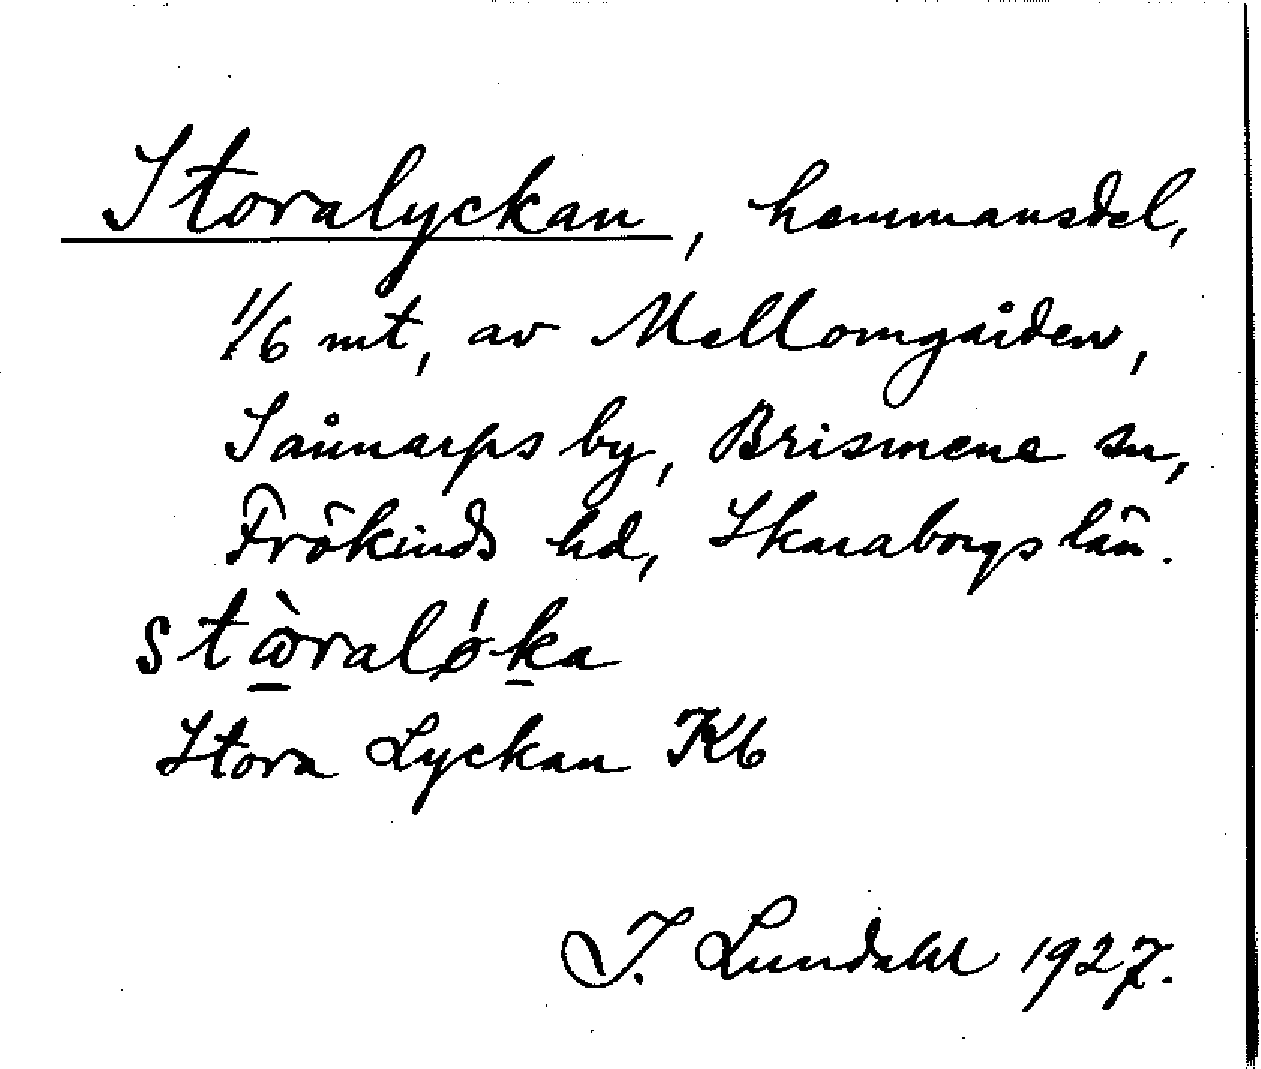 Storalyckan, hemmansdel,
1/6 mt, av Mellomgården,
Sånnarps by, Brismene sn,
Frökinds hd, Skaraborgs län.
Stora Lyckan Kb
I. Lundahl 1927.